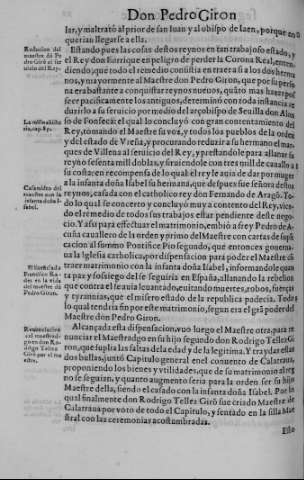 Don Pedro Giron
lar, y maltratò al prior de san Iuan y al obispo de Iaen, porque no
querian llegarse a ella.
Estando pues las cosas destos reynos en tan trabajoso estado, y
el Rey don Enrique en peligro de perder la Corona Real, enten-
diendo, que todo el remedio consistia en traer a si a los dos herma
nos, y mayormente al Maestre don Pedro Giron, que por su perso
na era bastante a conquistar reynos nueuos, quãto mas hazer pos
seer pacificamente los antiguos, determinò con toda instancia re-
duzirlo a su seruicio por medio del arçobispo de Seuilla don Alon
so de Fonseca: el qual lo concluyò con gran contentamiento del
Rey, tomando el Maestre su voz, y todos los pueblos de la orden
y del estado de Vreña, y procurando reduzir a su hermano el mar-
ques de Villena al seruicio del Rey, y prestandole para allanar su
reyno sesenta mil doblas, y siruiendole con tres mil de cauallo a
su costa: en recompensa de lo qual el rey le auia de dar por muger
a la infanta doña Isabel su hermana, que despues fue señora destos
reynos, casada con el catholico rey don Fernando de Aragõ. To-
do lo qual se concerto y concluyò muy a contento del Rey, vien-
do el remedio de todos sus trabajos estar pendiente deste nego-
cio. Y assi para effectuar el matrimonio, embiò a frey Pedro de A-
cuña cauallero de la orden y primo del Maestre con cartas de sup-
cacion al sommo Pontifice Pio segundo, que entonces gouerna-
ua la Iglesia catholica, por dispensacion para poder el Maestre cõ
traer matrimonio con la infanta doña Isabel, informandole quan
ta paz y sossiego dello se seguiria en España, allanando la rebelion
que contra el se auia leuantado, euitando muertes, robos, fuerças
y tyrannias, que el misero estado de la republica padecia. Toda
lo qual tendria fin por este matrimonio, segun era el grã poder del
Maestre don Pedro Giron.
Alcançada esta dispensacion, vuo luego el Maestre otra, para re
nunciar el Maestradgo en su hijo segundo don Rodrigo Tellez Gi
ron, que suplia las faltas de la edad y de la legitima. Y traydas estas
dos bullas, juntò Capitulo general en el conuento de Calatraua,
proponiendo los bienes y vtilidades, que de su matrimonio al rey
no se seguian, y quanto augmento seria para la orden ser su hijo
Maestre della, siendo el casado con la infanta doña Isabel. Por lo
qual finalmente don Rodrigo Tellez Girõ fue criado Maestre de
Calatraua por voto de todo el Capitulo, y sentado en la silla Maes
tral con las ceremonias acostumbradas.
Esto